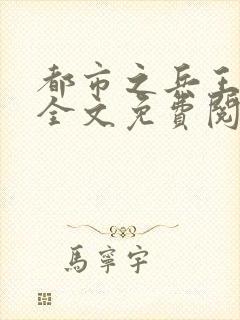 都市之兵王
全文免費閱
馬寧宇